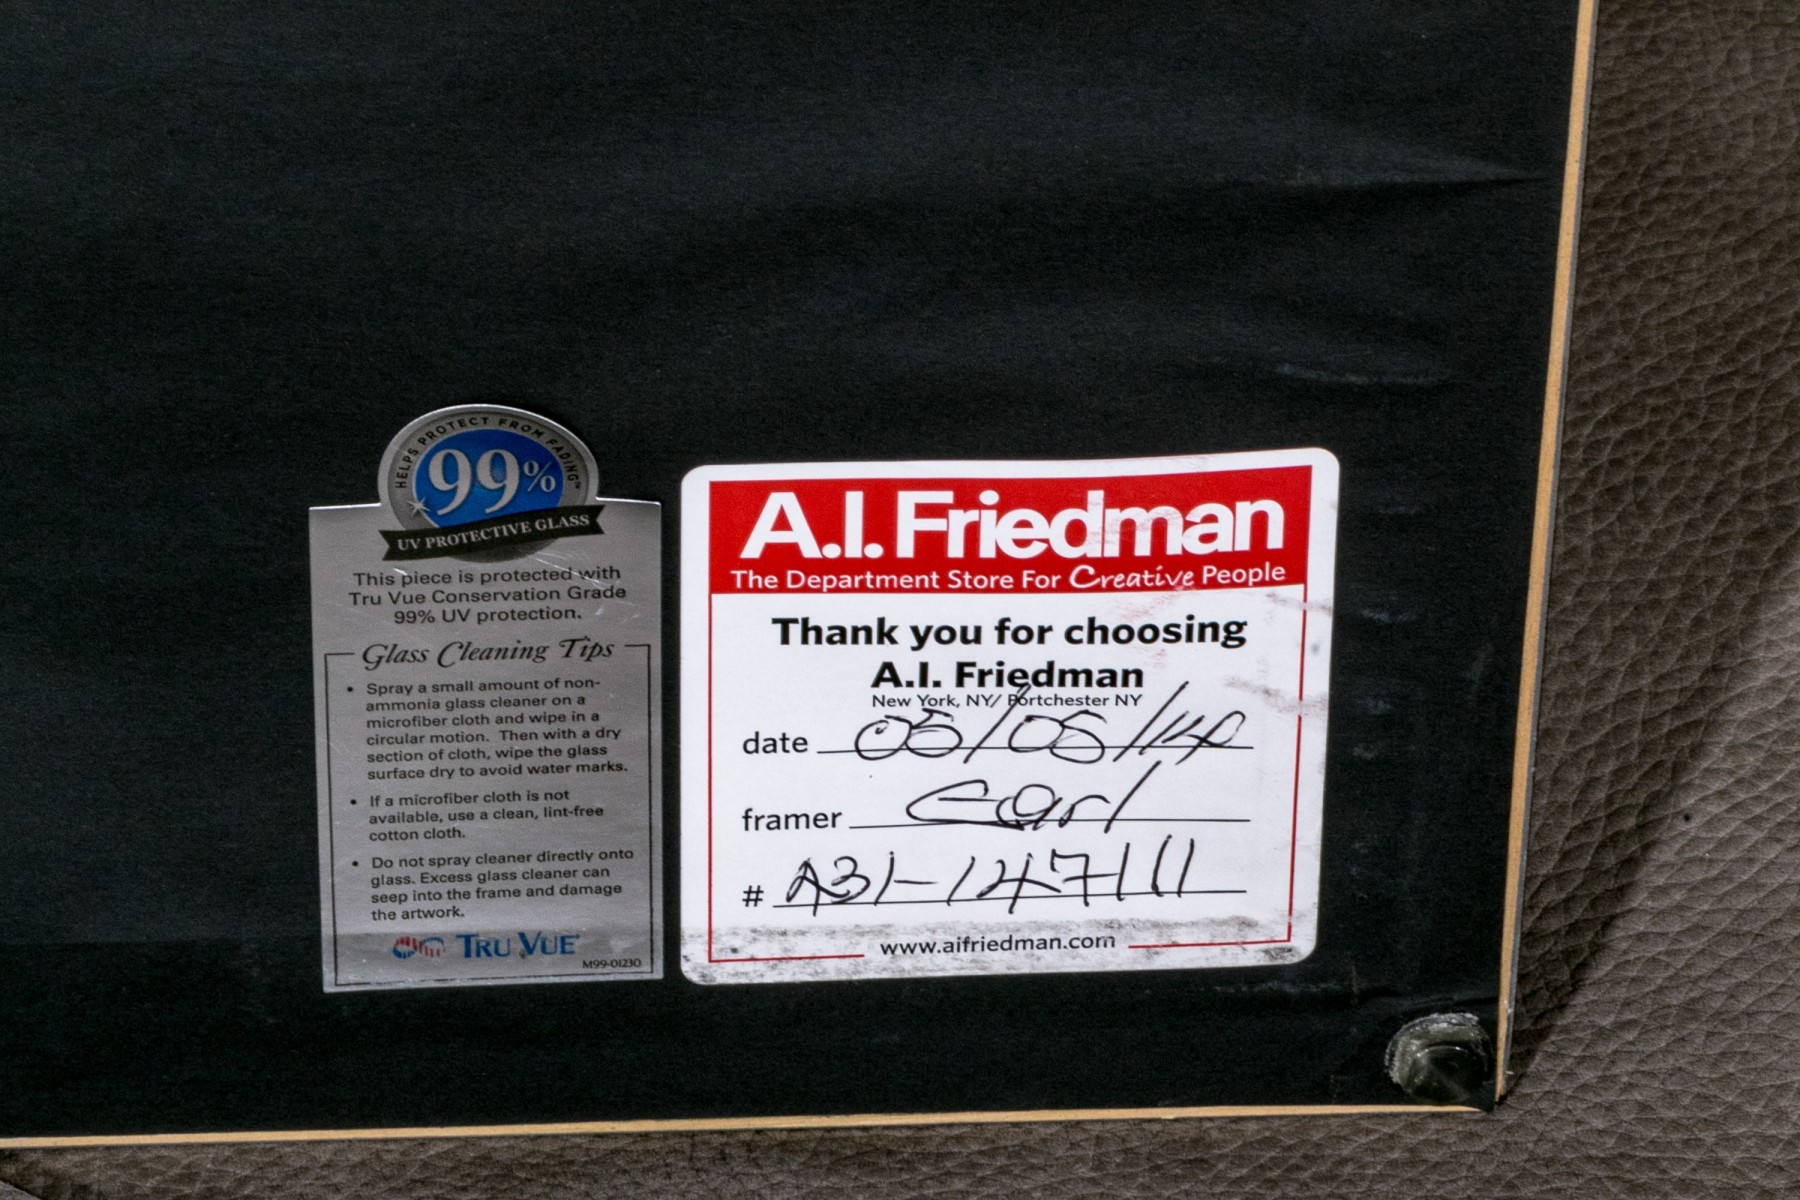 HELPS PROTECT FROM FADING™
99%
UV PROTECTIVE GLASS
This piece is protected with
Tru Vue Conservation Grade
99% UV protection.
Glass Cleaning Tips
• Spray a small amount of non-
ammonia glass cleaner on a
microfiber cloth and wipe in a
circular motion. Then with a dry
section of cloth, wipe the glass
surface dry to avoid water marks.
• If a microfiber cloth is not
available, use a clean, lint-free
cotton cloth.
• Do not spray cleaner directly onto
glass. Excess glass cleaner can
seep into the frame and damage
the artwork.
TRU VUE®
M99-01230
A.I. Friedman
The Department Store For Creative People
Thank you for choosing
A.I. Friedman
New York, NY/ Portchester NY
date 05/05/14
framer Earl
# A31-147111
www.aifriedman.com